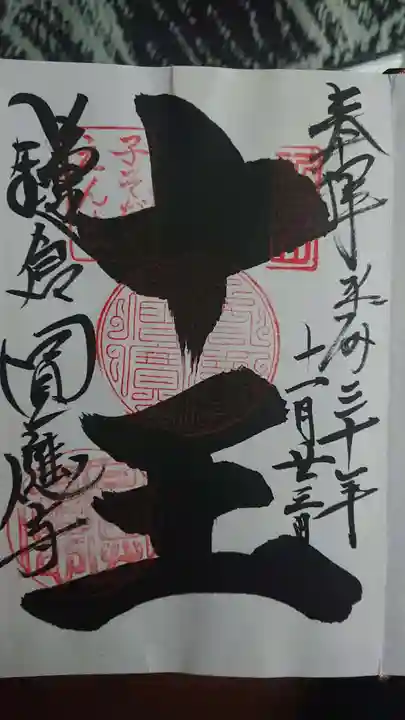 奉拝 平成三十年
十一月廿三日
十王
鎌倉 圓應寺
子そだて
えんま